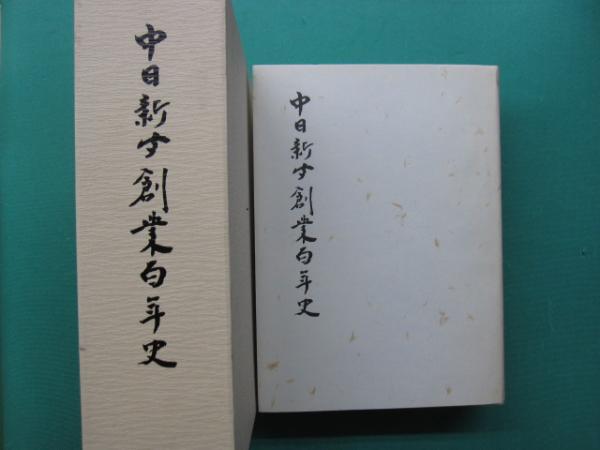 中日新聞創業百年史
中日新聞創業百年史